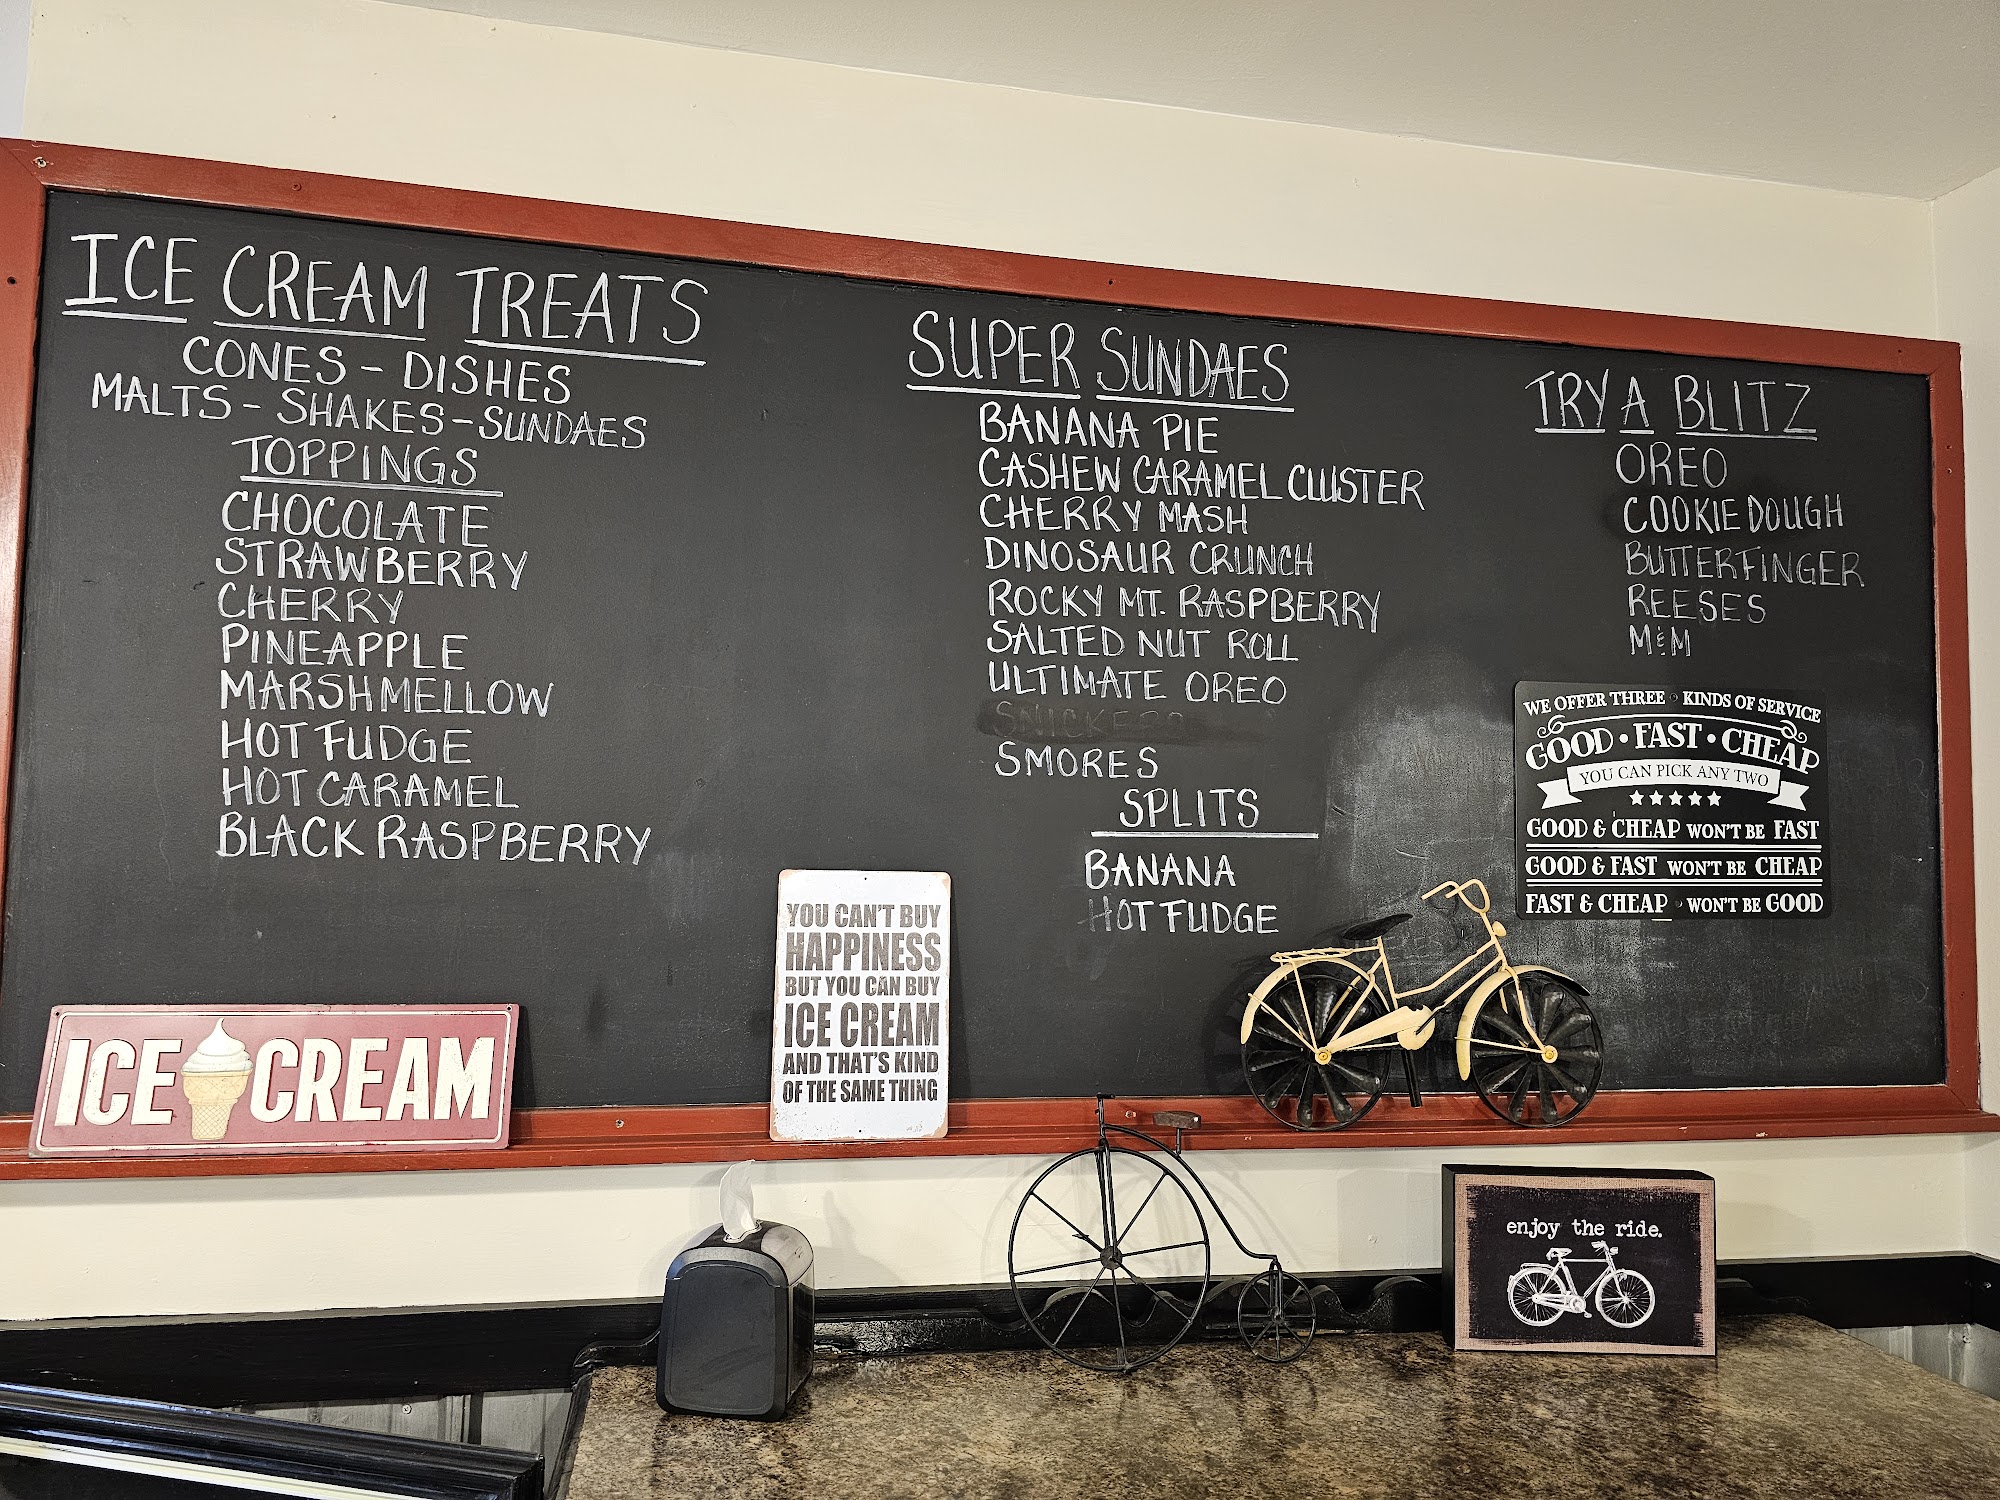 ICE CREAM TREATS
CONES - DISHES
MALTS - SHAKES - SUNDAES
TOPPINGS
CHOCOLATE
STRAWBERRY
CHERRY
PINEAPPLE
MARSHMELLOW
HOT FUDGE
HOT CARAMEL
BLACK RASPBERRY
SUPER SUNDAES
BANANA PIE
CASHEW CARAMEL CLUSTER
CHERRY MASH
DINOSAUR CRUNCH
ROCKY MT. RASPBERRY
SALTED NUT ROLL
ULTIMATE OREO
SNICKERS
SMORES
SPLITS
BANANA
HOT FUDGE
TRY A BLITZ
OREO
COOKIE DOUGH
BUTTERFINGER
REESES
M&M
WE OFFER THREE KINDS OF SERVICE
GOOD • FAST • CHEAP
YOU CAN PICK ANY TWO
GOOD & CHEAP WON'T BE FAST
GOOD & FAST WON'T BE CHEAP
FAST & CHEAP WON'T BE GOOD
YOU CAN'T BUY
HAPPINESS
BUT YOU CAN BUY
ICE CREAM
AND THAT'S KIND
OF THE SAME THING
ICE CREAM
enjoy the ride.